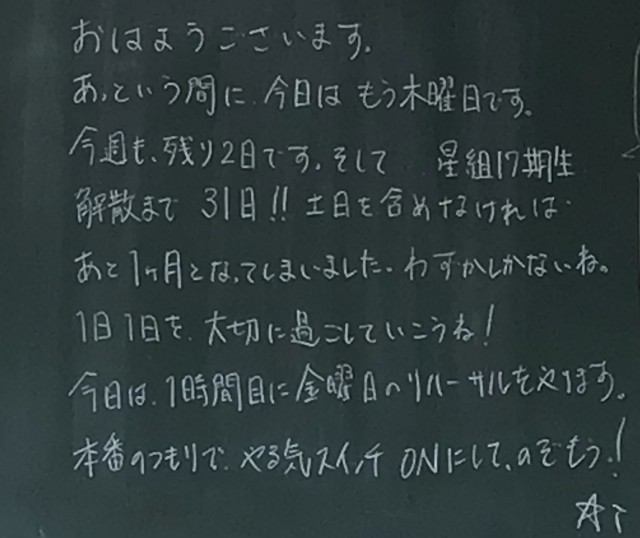 おはようございます。
あっという間に、今日は もう木曜日です。
今週も、残り2日です。そして 星組17期生
解散まで 31日!! 土日を含めなければ
あと1ヶ月となってしまいました。わずかしかないね。
1日1日を、大切に過ごしていこうね!
今日は、1時間目に金曜日のリハーサルをやります。
本番のつもりで、やる気スイッチ ONにして、のぞもう!